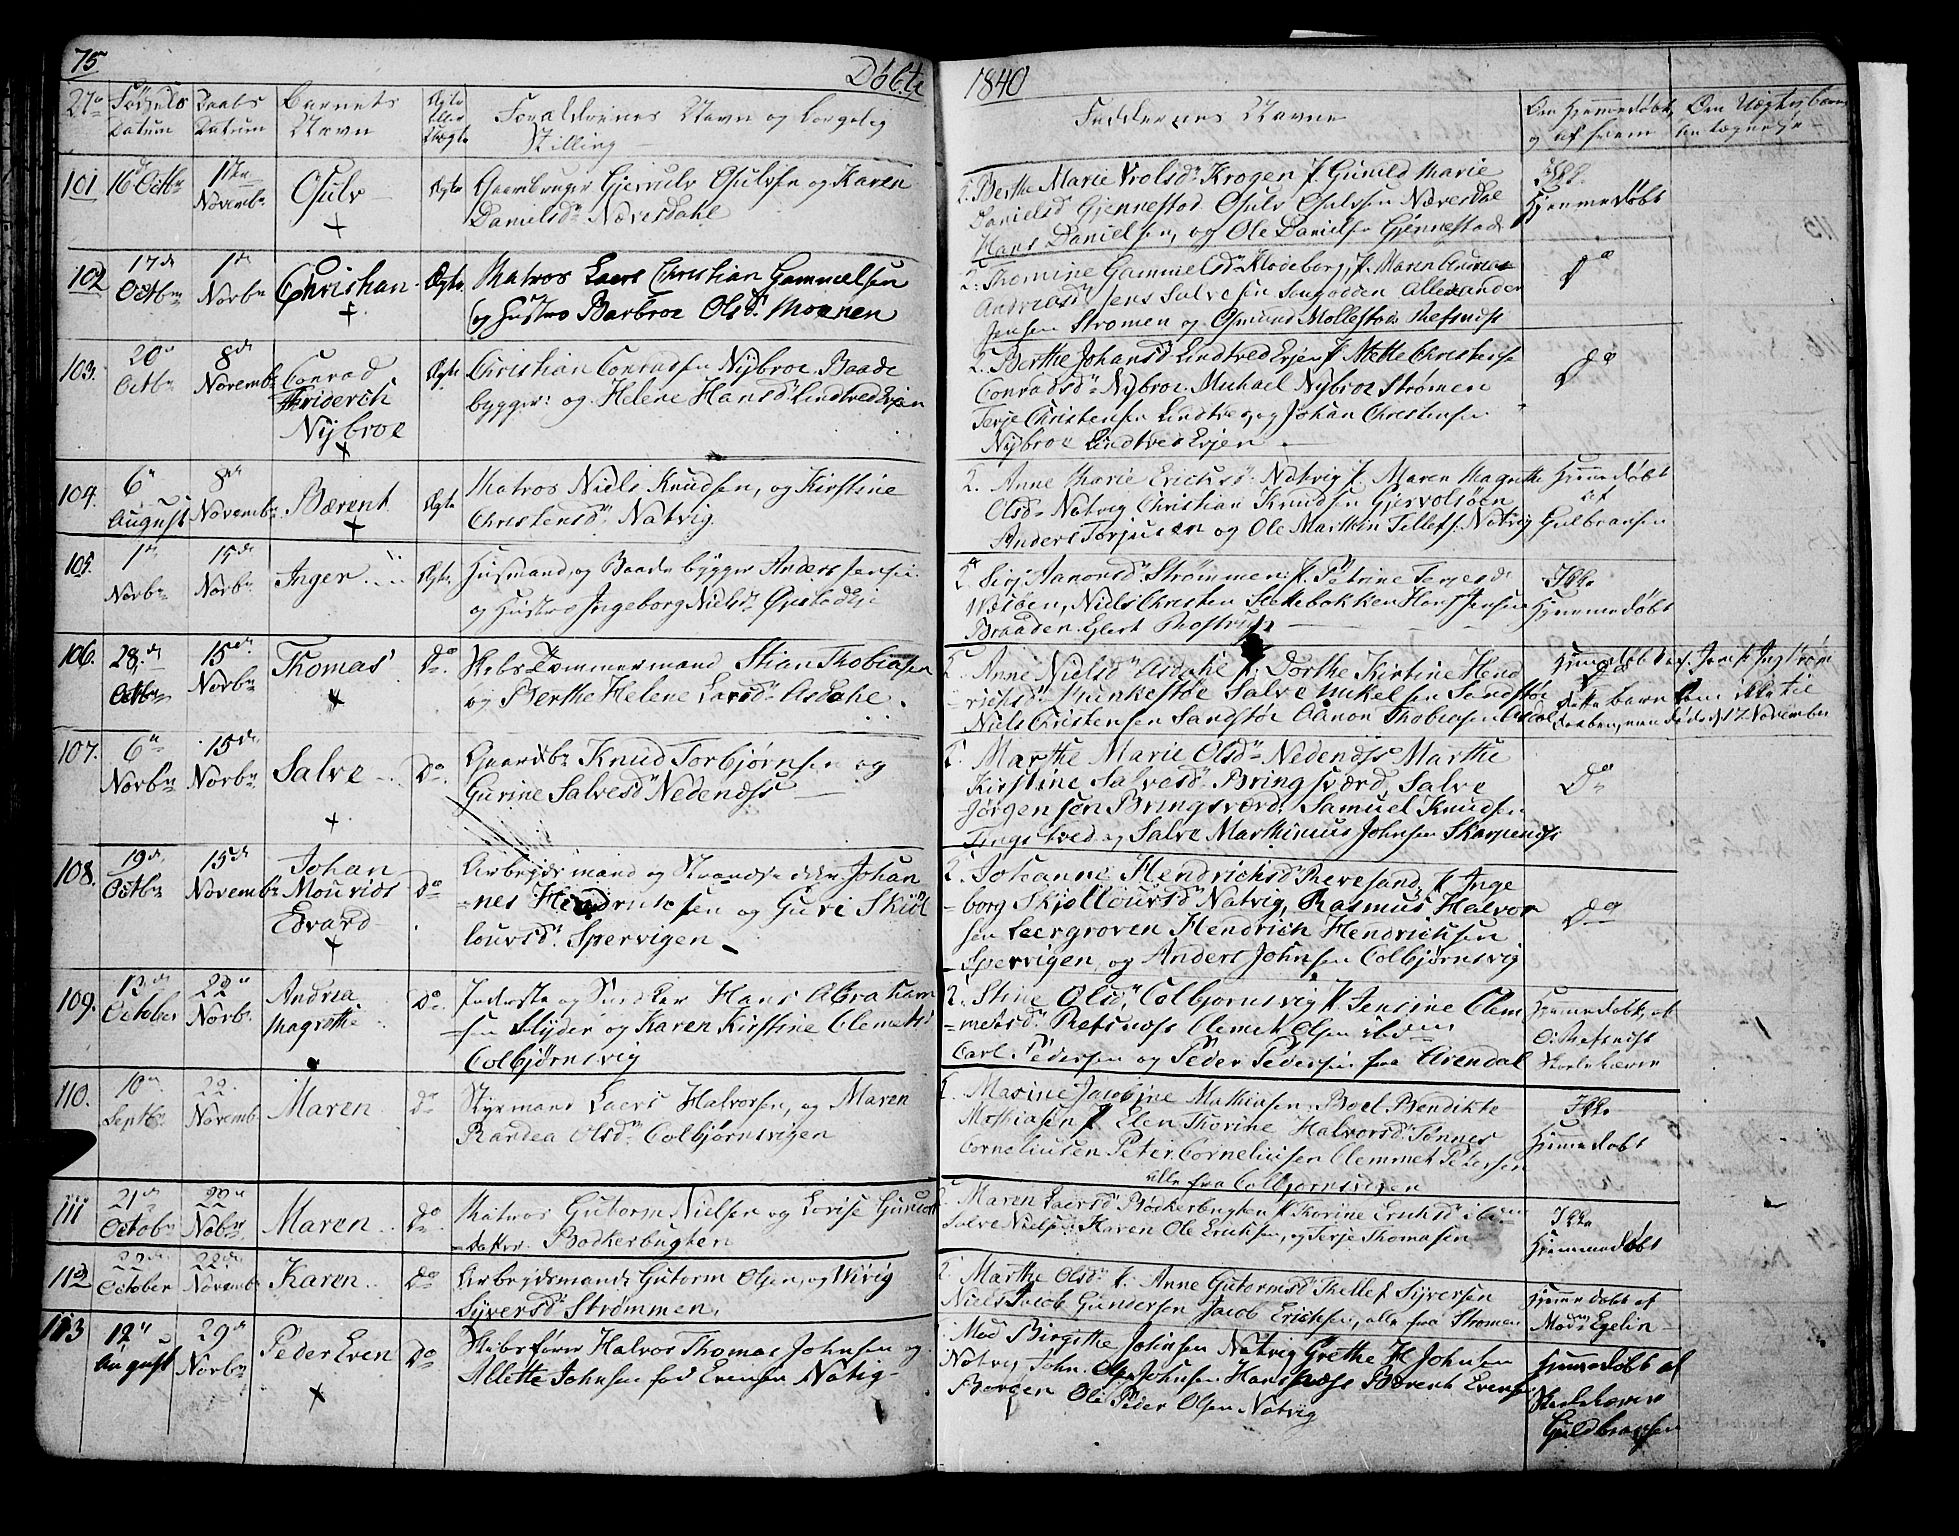 75
Døbte
1840
No Fødsels Datum
Daabs Datum
Barnets Navn
Ægte eller Uægte
Foraldrenes Navn og borgelig Stilling
Faddernes Navne
Om Hjemmedøbt og af hvem
101 16 Octbr 1ste Novembr Osulv Ægte
Gaardbruger Gjerulv Osulvsen og Karen
Danielsdr Næversdahl
2. Berthe Marie Krogen f. Gunild Marie
Danielsd Gjennestad Osulv Osulvsen Næversdal
Hans Danielsen, og Ole Danielsen Gjennestad
Ikke Hjemmedøbt
102 17de Octbr 1ste Novbr Christian Ægte
Matros Laers Christian Gammelsen
og Hustro Barbroe Olsdr Moenen
2: Thomine Gammelsdr Klodeborg, f. Maren
Andreasdr Jens Salvesen Songodden Allexander
Jensen Strømen og Osmund Mollestad Refsnæss
Do
103. 20de Octbr 8de Novembr Conrad Friderich Nÿbroe Ægte
Christian Conradsen Nÿbroe Baade
bygger: og Helene Hansdr Lindtved Eijen
2. Berthe Johansdr Lindtved Eijen f. Mette Christense
Conradsdr Nÿbroe. Michael Nÿbroe Strømen
Terje Christensen Lindtved, og Johan Christensen
Nÿbroe Lindtved Eijen
Do
104. 6te August 8de Novembr Bærent Ægte
Matros Niels Knudsen, og Kirstine
Christensdr Natvig
2. Anne Marie Ericksdr Natvig f. Maren Magrethe
Olsdr Natvig Christian Knudsen Gjervolsøen
Anders Torjusen og Ole Marthin Tellefs. Natvig
Hjemmedøbt af Gulbransen
105. 1ste Novbr 15de Novbr Inger Ægte
Husmand og Baadebygger Anders Jensen
og Hustro Ingeborg Nielsdr
2. Siri Aanonsdr Strømmen f. Petrine Terjesdr
Niels Christen Hans Jensen
Braaden Elert
Ikke Hjemmedøbt
106. 28de Octbr 15de Novbr Thomas Do
Skibstømmermand Stian Thobiasen
og Berthe Helene Larsdr Asdahl
2. Anne Nielsdr Asdahl f. Dorthe Kirstine Hend
richsdr Salve Mikelsen Sandstøe
Niels Christensen Sandstøe Aanon Thobiasen Asdal
Do
Dette barn kom ikke til
Daaben, men døde d 17 November
107. 6te Novbr 15de Novbr Salve Do
Gaardbr Knud Torbjørnsen og
Gurine Salvesdr Nedenæss
2. Marthe Marie Olsdr Nedenæss Marthe
Kirstine Salvesdr Bringsværd, Salve
Jørgensen Bringsværd. Samuel Knudsen
Tingstved og Salve Marthinius Johnsen Skarpenæss
Do
108. 19de Octbr 15de Novembr Johan Mouritds Edvard Do
Arbejdsmand og Strandsidder Johan
nes Hendrichsen og Guri Skiöl
louvsdr Spervigen
2. Johanne Hendrichsdr Revesand f. Inge
borg Skjöllouvsdr Natvig, Rasmus Halvor
sen Leergroven Hendrich Hendrichsen
Spervigen, og Anders Johnsen Colbjørnsvig
Do
109. 13de October 22de Novbr Andrea Magrethe Do
Inderste og Snedker Hans Abraham
sen Slÿder og Karen Kirstine Clemetsdr
Colbjørnsvig
2. Stine Olsdr Colbjørnsvig f. Jensine Clem
metsdr Refsnæss Clemet Olsen ibidem
Carl Pedersen og Peder Pedersen fra Arendal
Hjemmedøbt af O. Refsnæss Skolelærer
110. 10de Septbr 22. Novemb Maren Do
Styrmand Laers Halvorsen, og Maren
Randea Olsdr Colbjørnsvigen
2. Marine Jacobine Mathiasen. Boel Bendikte
Mathiasen f. Elen Thorine Halvorsdr Tønnes
Corneliusen Peter Corneliusen Clemmet Petersen
alle fra Colbjørnsvigen
Ikke Hjemmedøbt
111 21de Octobr 22de Nobr Maren Do
Matros Gutorm Nielsen og Lovise Gunuld
datter Bødkerbugten
2. Maren Laersdr Bødkerbugten f. Thorine Ericksdr ibidem
Salve Nielsen Haven Ole Ericksen, og Terje Thomasen
Ikke Hjemmedøbt
112 22de October 22de Novembr Karen Do
Arbejdsmand Gutorm Olsen, og Wivig
Sÿversdr Strømmen
2. Marthe Olsdr f. Anne Gutormsdr Thellef Sÿversen
Niels Jacob Gundersen Jacob Ericksen, alle fra Strømen
Hjemmedøbt af Madm Egelin
113 12te August 29de Novbr Peder Even Do
Skibsfører Halvor Thomas Johnsen og
Allette Johnsen fød Evensen Natvig
Mad Birgithe Johnsen Natvig Grethe H Johnsen
Natvig John Olsen Johnsen Hans næss Bærent Evensen
Borgen Ole Peder Olsen Natvig
Hjemmedøbt af Skolelærer Guldbransen